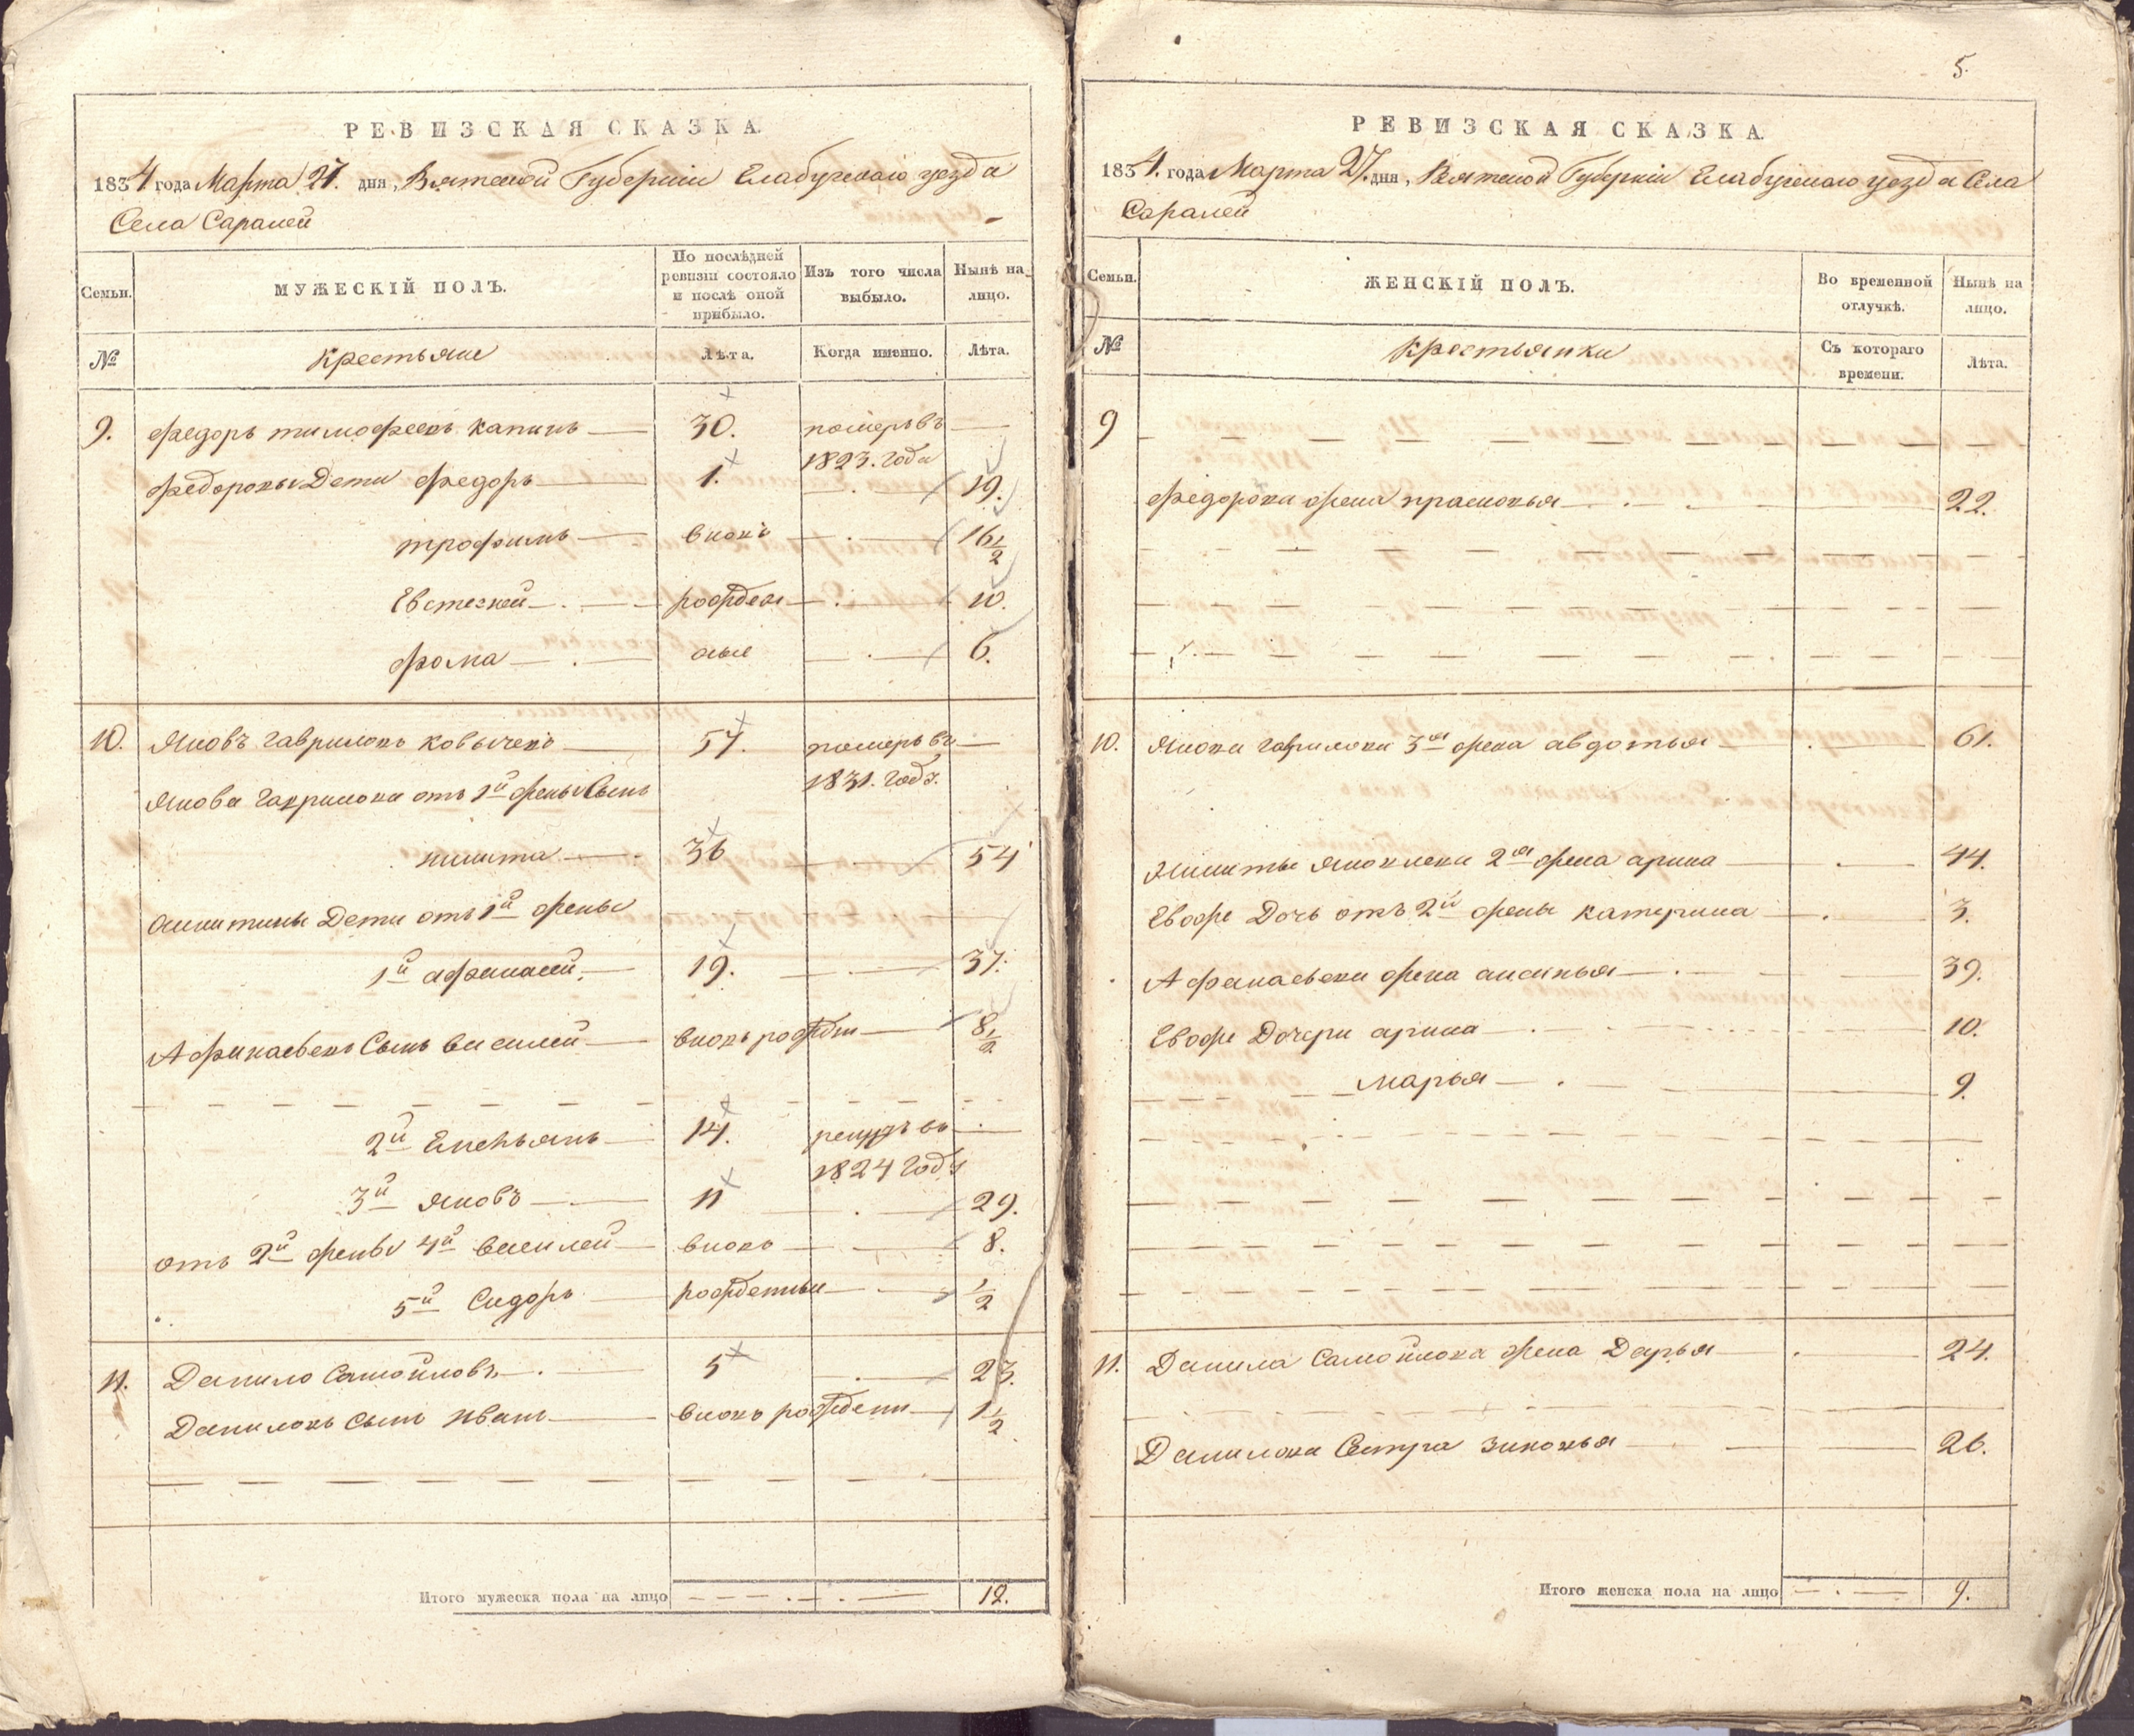 РЕВИЗСКАЯ СКАЗКА.
1834 года Марта 27. дня, Вятской Губернии Елабужскаго уезда
Села Саралей
Семьи.
МУЖЕСКІЙ ПОЛЪ.
По послѣдней ревизіи состояло и послѣ оной прибыло.
Изъ того числа выбыло.
Нынѣ на лицо.
№
крестьяне
Лѣта.
Когда именно.
Лѣта.
9. федоръ тимофеевъ капинъ 30. померъ въ
1823. года
федоровы Дети федоръ 1. 19.
трофимъ вновь 16 1/2
Евстегней рожден 10.
фома ные 6.
10. Яковъ гавриловъ 57. померъ въ
1831. годъ.
Якова Гаврилова отъ 1й жены Сынъ
никита 36 54
никитины Дети отъ 1й жены
1й афанасей 19. 37.
Афанасьевъ Сынъ василей вновь рожден 8 1/2
2й Емельянъ 14. рекрутъ въ
1824 году
3й яковъ 11 29.
отъ 2й жены 4й василей вновь 8.
5й Сидоръ рожденные 1/2
11. Данило Самойловъ 5 23.
Даниловъ Сынъ иванъ вновь рожден 1 1/2
Итого мужеска пола на лицо 12.
5.
РЕВИЗСКАЯ СКАЗКА.
1834. года Марта 27. дня, Вятской Губерніи Елабужскаго уезда Села
Саралей
Семьи.
ЖЕНСКІЙ ПОЛЪ.
Во временной отлучкѣ.
Нынѣ на лицо.
№
Крестьянки
Съ котораго времени.
Лѣта.
9
федорова жена прасковья 22.
10. Якова гаврилова 3я жена авдотья 61.
Никиты яковлева 2я жена арина 44.
Евоже Дочь отъ 2й жены катерина 3.
Афанасьева жена аксинья 39.
Евоже Дочери арина 10.
марья 9.
11. Данила Самойлова жена Дарья 24.
Данилова Сестра зиновья 26.
Итого женска пола на лицо 9.